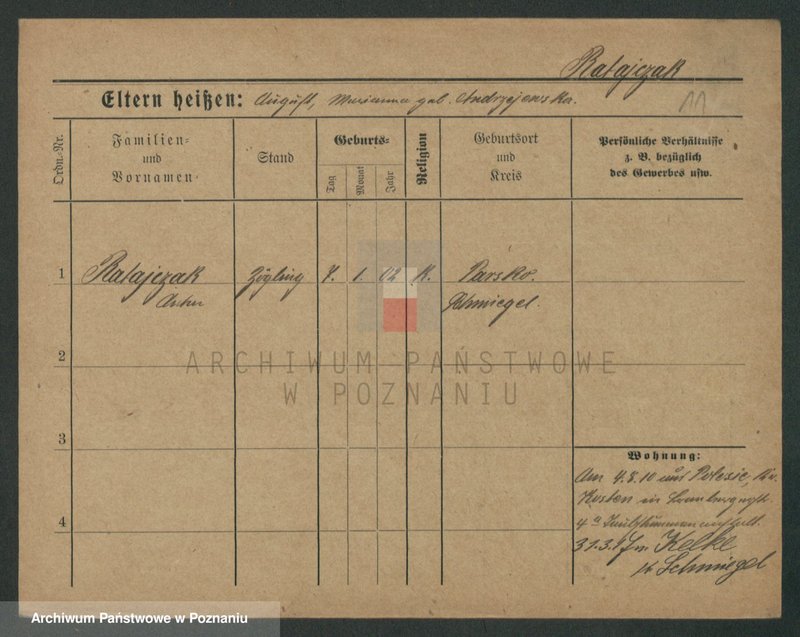 Ratajczak
Eltern heißen: August, Marianna geb. Andrzejewska.
11
Ordn.-Nr.
Familien-
und
Vornamen-
Stand
Geburts-
Tag
Monat
Jahr
Religion
Geburtsort
und
Kreis
Persönliche Verhältnisse
z. B. bezüglich
des Gewerbes usw.
1 Ratajczak Zögling 7. 1. 02 K. Parsko.
Schmiegel.
2
ARCHIWUM PAŃSTWOWE
W POZNANIU
3
Wohnung:
Am 4.8.10 aus Polesie, Kr.
Kosten in
4
31.3.17 n. Kelke
Kr. Schmiegel
Archiwum Państwowe w Poznaniu